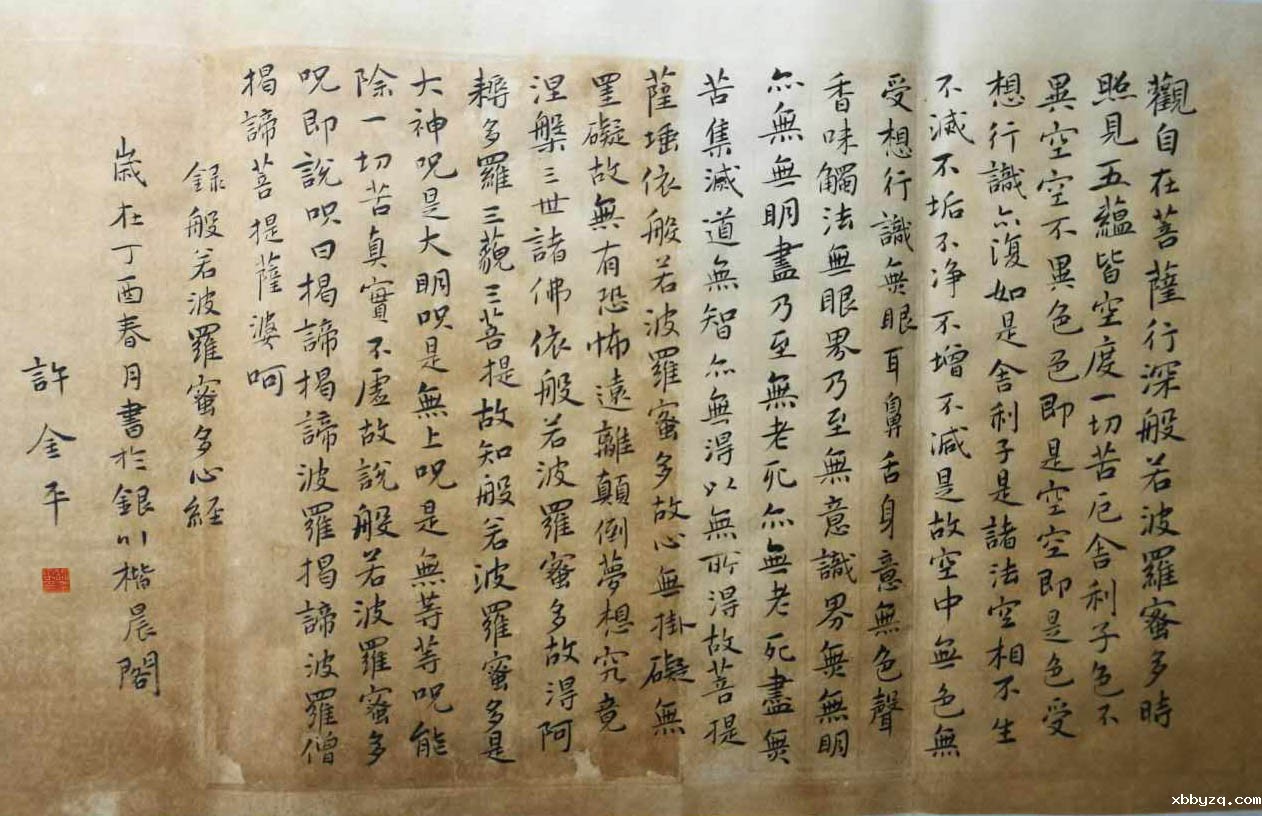 觀自在菩薩行深般若波羅蜜多時
照見五蘊皆空度一切苦厄舍利子色不
異空空不異色色即是空空即是色受
想行識亦復如是舍利子是諸法空相不生
不滅不垢不净不增不減是故空中無色無
受想行識無眼耳鼻舌身意無色聲
香味觸法無眼界乃至無意識界無無明
亦無無明盡乃至無老死亦無老死盡無
苦集滅道無智亦無得以無所得故菩提
薩埵依般若波羅蜜多故心無掛礙無
罣礙故無有恐怖遠離顛倒夢想究竟
涅槃三世諸佛依般若波羅蜜多故得阿
耨多羅三藐三菩提故知般若波羅蜜多是
大神呪是大明呪是無上呪是無等等呪能
除一切苦真實不虛故說般若波羅蜜多
呪即說呪曰揭諦揭諦波羅揭諦波羅僧
揭諦菩提薩婆呵
録般若波羅蜜多心経
嵗在丁酉春月書於銀川楷晨閣
許金平
xbbyzq.com